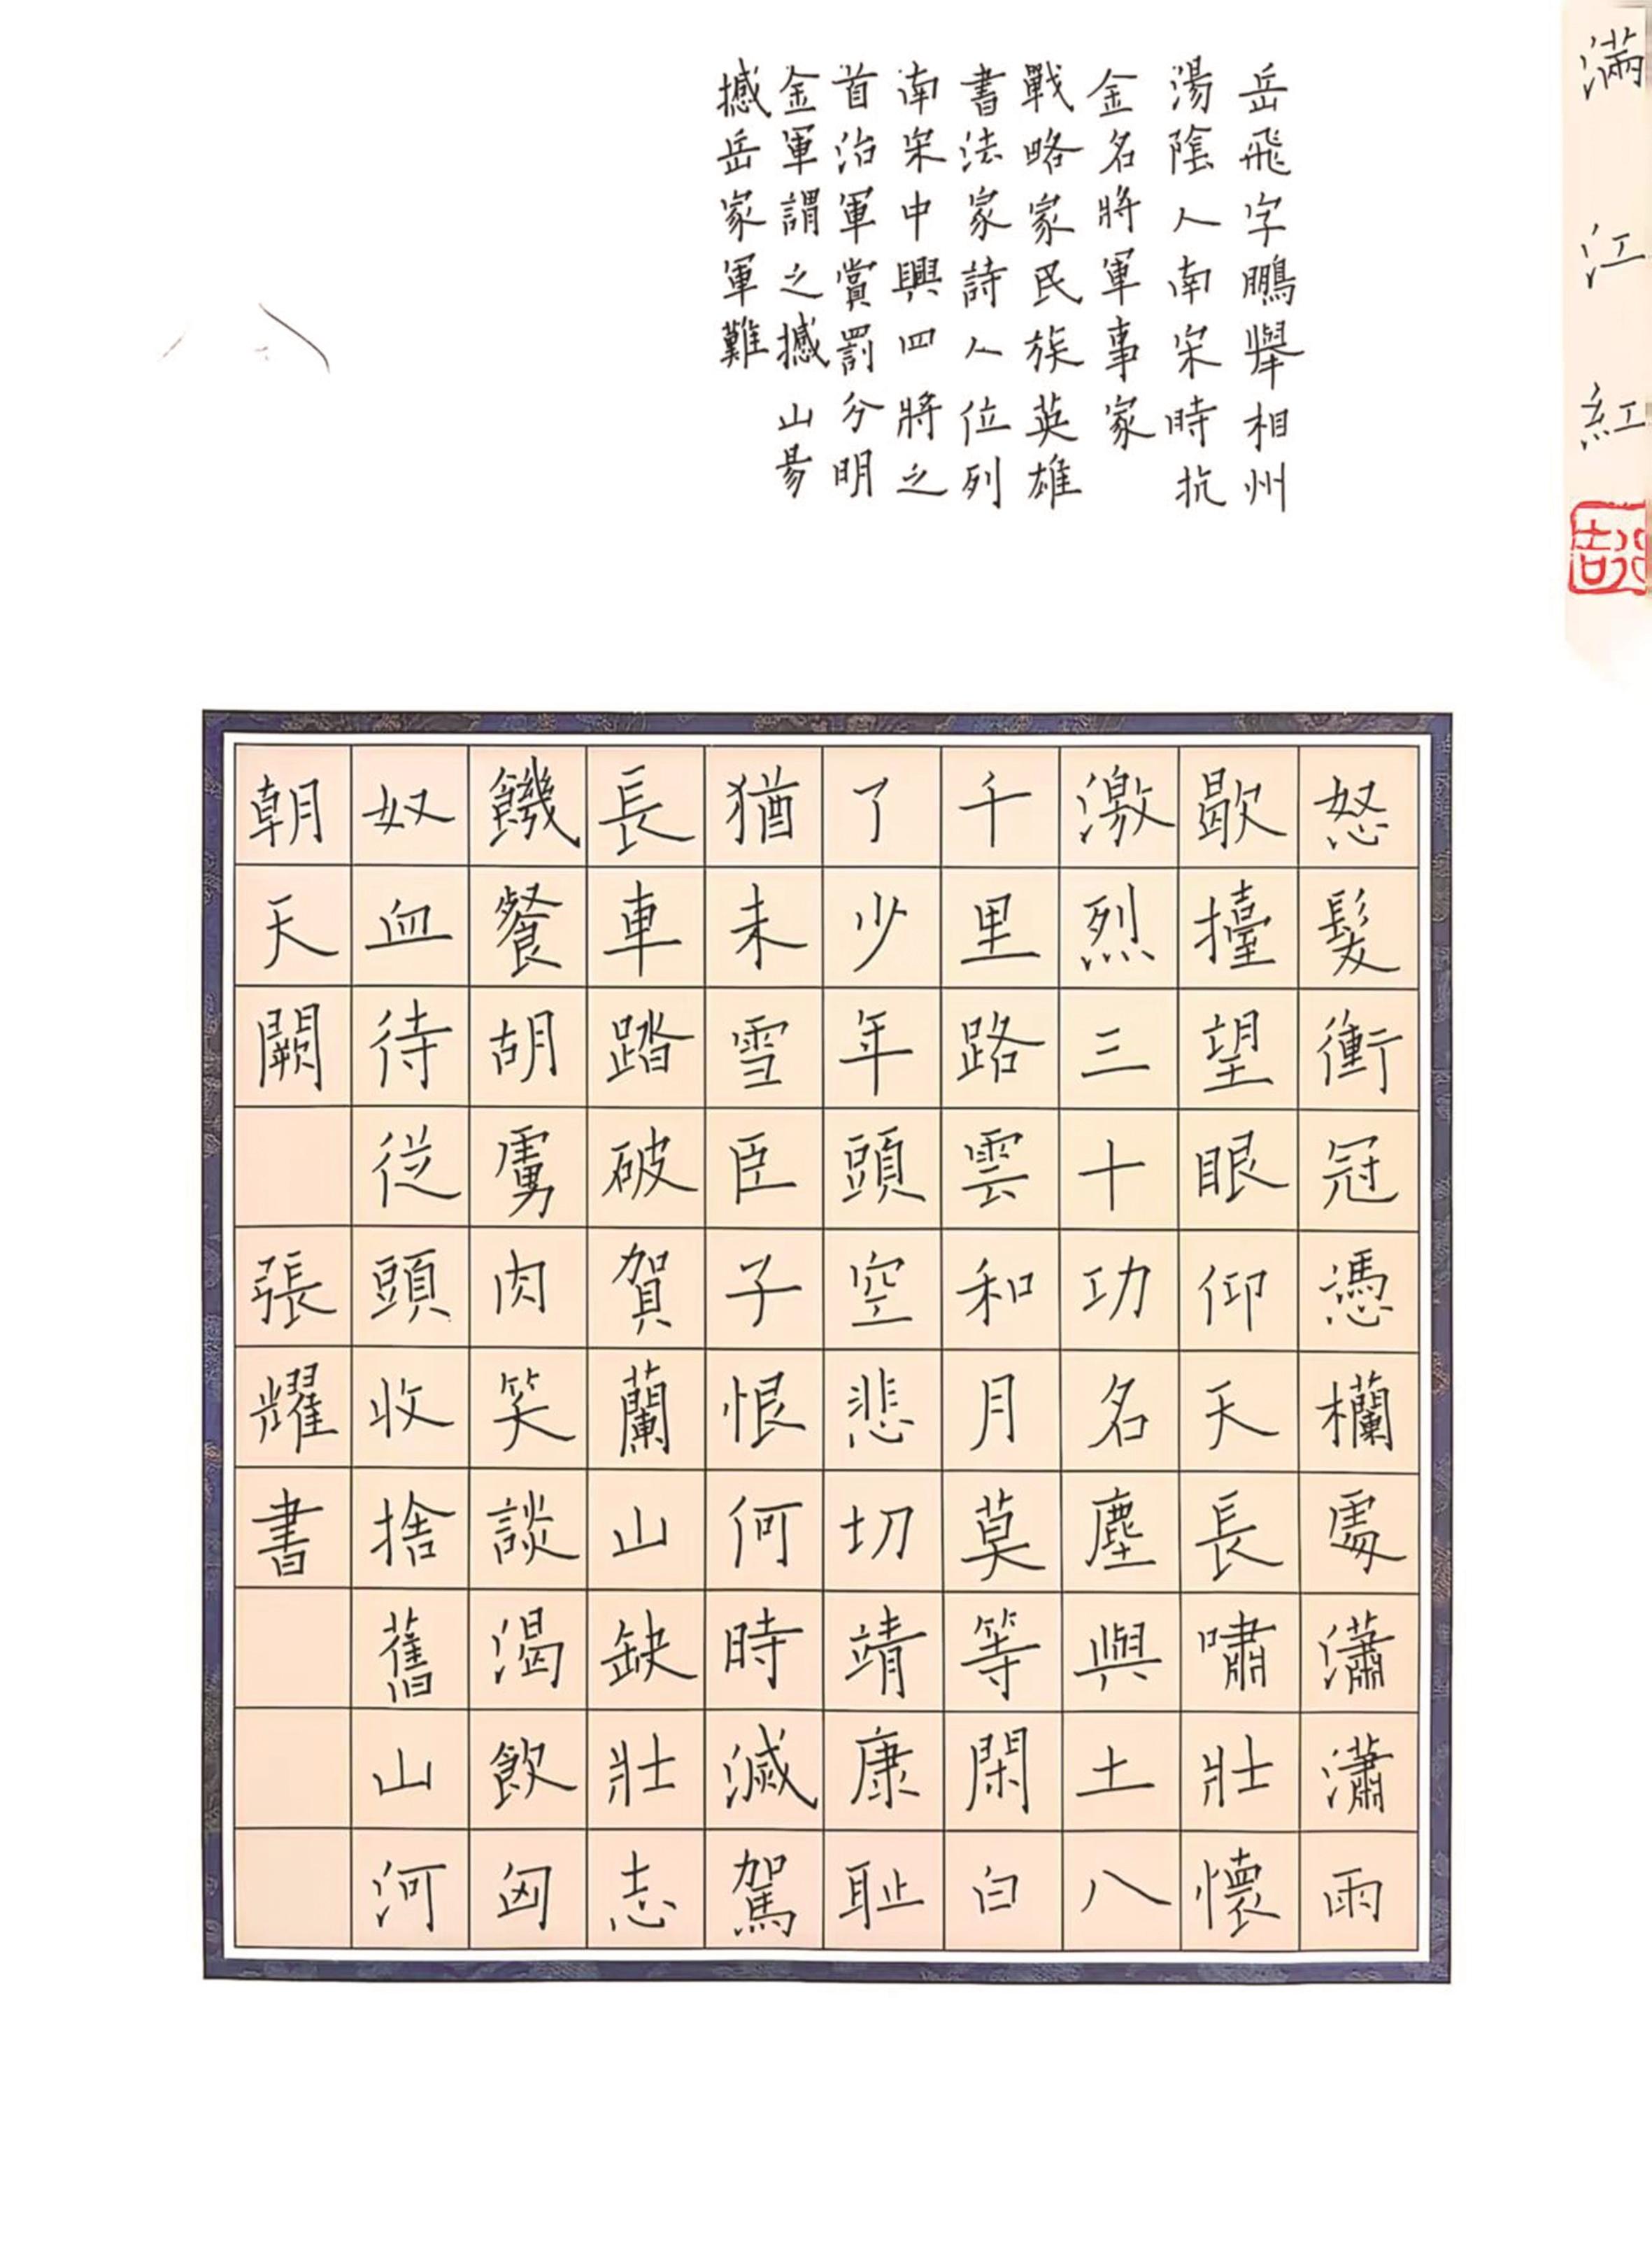 滿江紅
岳飛字鵬舉相州
湯陰人南宋時抗
金名將軍事家
戰略家民族英雄
書法家詩人位列
南宋中興四將之
首治軍賞罰分明
金軍謂之撼山易
撼岳家軍難
怒髮衝冠憑欄處瀟瀟雨
歇擡望眼仰天長嘯壯懷
激烈三十功名塵與土八
千里路雲和月莫等閑白
了少年頭空悲切靖康耻
猶未雪臣子恨何時滅駕
長車踏破賀蘭山缺壯志
饑餐胡虜肉笑談渴飲匈
奴血待從頭收捨舊山河
朝天闕 張耀書